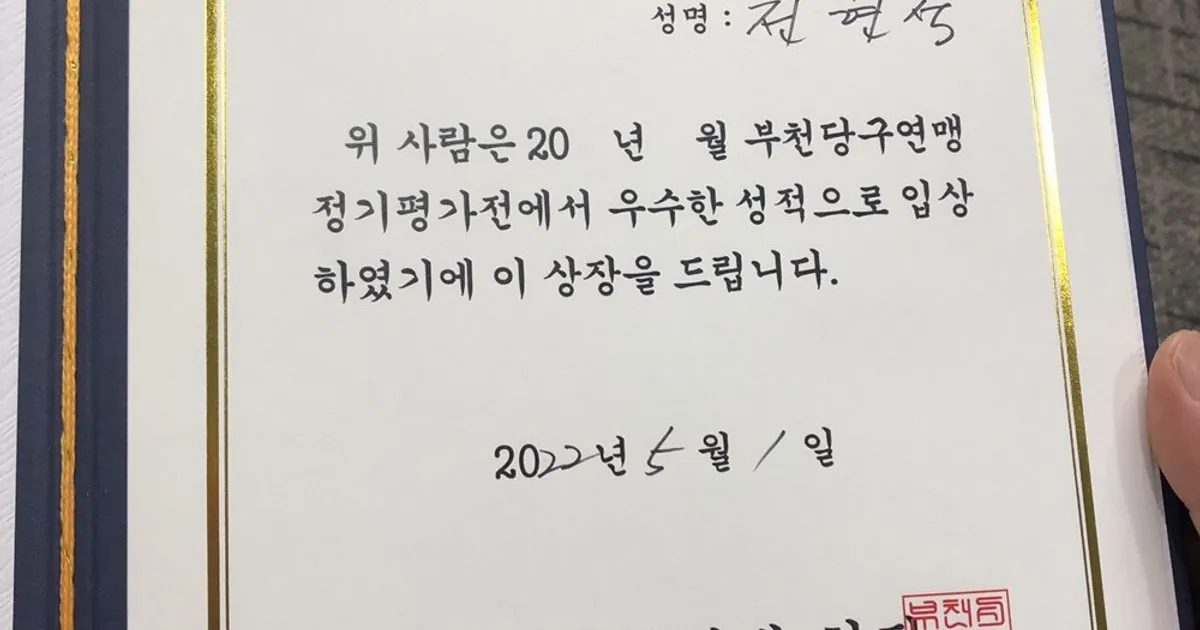 성명 : 전현석
위 사람은 20 년 월 부천당구연맹
정기평가전에서 우수한 성적으로 입상
하였기에 이 상장을 드립니다.
2022년 5월 1일